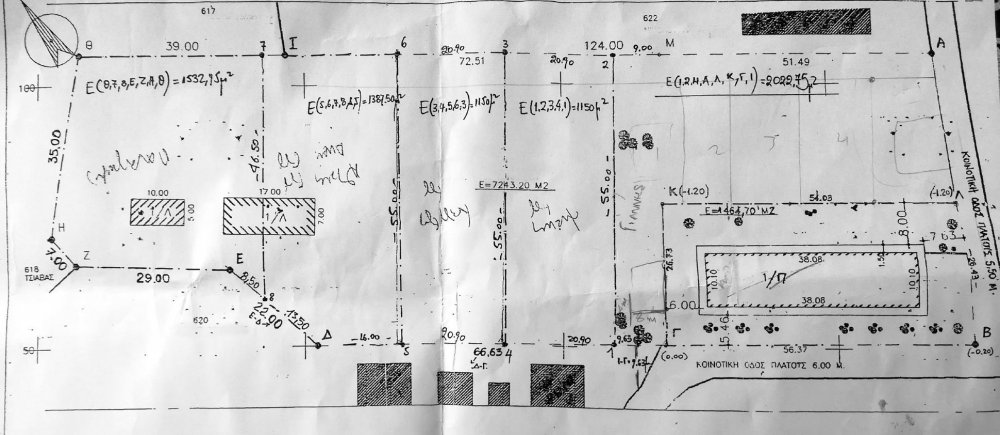 617
622
Θ
39.00
7
I
6
20.90
72.51
3
124.00
2
20.90
9.00
M
51.49
A
100
E(θ,7,8,E,Z,H,θ)=1532,75μ²
E(5,6,7,8,Δ,5)=1387.50μ²
E(3,4,5,6,3)=1150μ²
E(1,2,3,4,1)=1150μ²
35.00
46.50
55.00
55.00
55.00
2
3
4
E=7243.20 M2
K(-1.20)
54.03
(-1.20)
Λ
ΚΟΙΝΟΤΙΚΗ ΟΔΟΣ ΠΛΑΤΟΥΣ 5.50 M.
E=1464,70 M2
8.00
10.00
5.00
1/Λ
17.00
7.00
1/Λ
H
7.00
Z
618
ΤΣΙΑΒΑΣ
29.00
E
8,50
8
22.00
13.50
E-Δ
620
Δ
26.73
38.08
1.50
10.10
1/Π
10.10
38.08
26.43
6.00
15.46
50
16.00
5
20.90
66,63
4
Δ-Γ.
20,90
1
9,63
1-Γ=9.63
Γ
(0.00)
56.37
B
(-0.20)
ΚΟΙΝΟΤΙΚΗ ΟΔΟΣ ΠΛΑΤΟΥΣ 6.00 M.